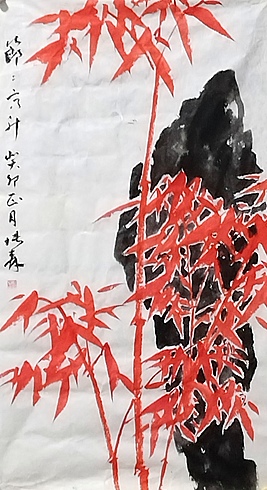 節〻高升 癸卯正月